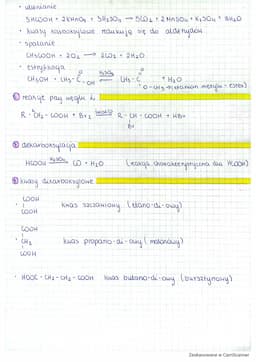 • utlenianie
5HCOOH + 2KMnO₄ + 3H₂SO₄ → 5CO₂ + 2MnSO₄ + K₂SO₄ + 8H₂O
• kwasy karboksylowe redukują się do aldehydów
• spalanie
CH₃COOH + 2O₂ → 2CO₂ + 2H₂O
• estryfikacja
CH₃OH + CH₃-C O OH H₂SO₄ CH₃-C O O-CH₃ + H₂O
(etanian metylu - ester)
reakcje przy węglu α
R-CH₂-COOH + Br₂ → R-CH-COOH + HBr
Br
dekarboksylacja
HCOOH H₂SO₄ → CO + H₂O (reakcja charakterystyczna dla HCOOH)
kwasy dikarboksylowe
COOH
• | kwas szczawiowy (etano-di-owy)
COOH
COOH
|
• CH₂ kwas propano-di-owy (malonowy)
|
COOH
• HOOC-CH₂-CH₂-COOH kwas butano-di-owy (bursztynowy)
Zeskanowane w CamScanner